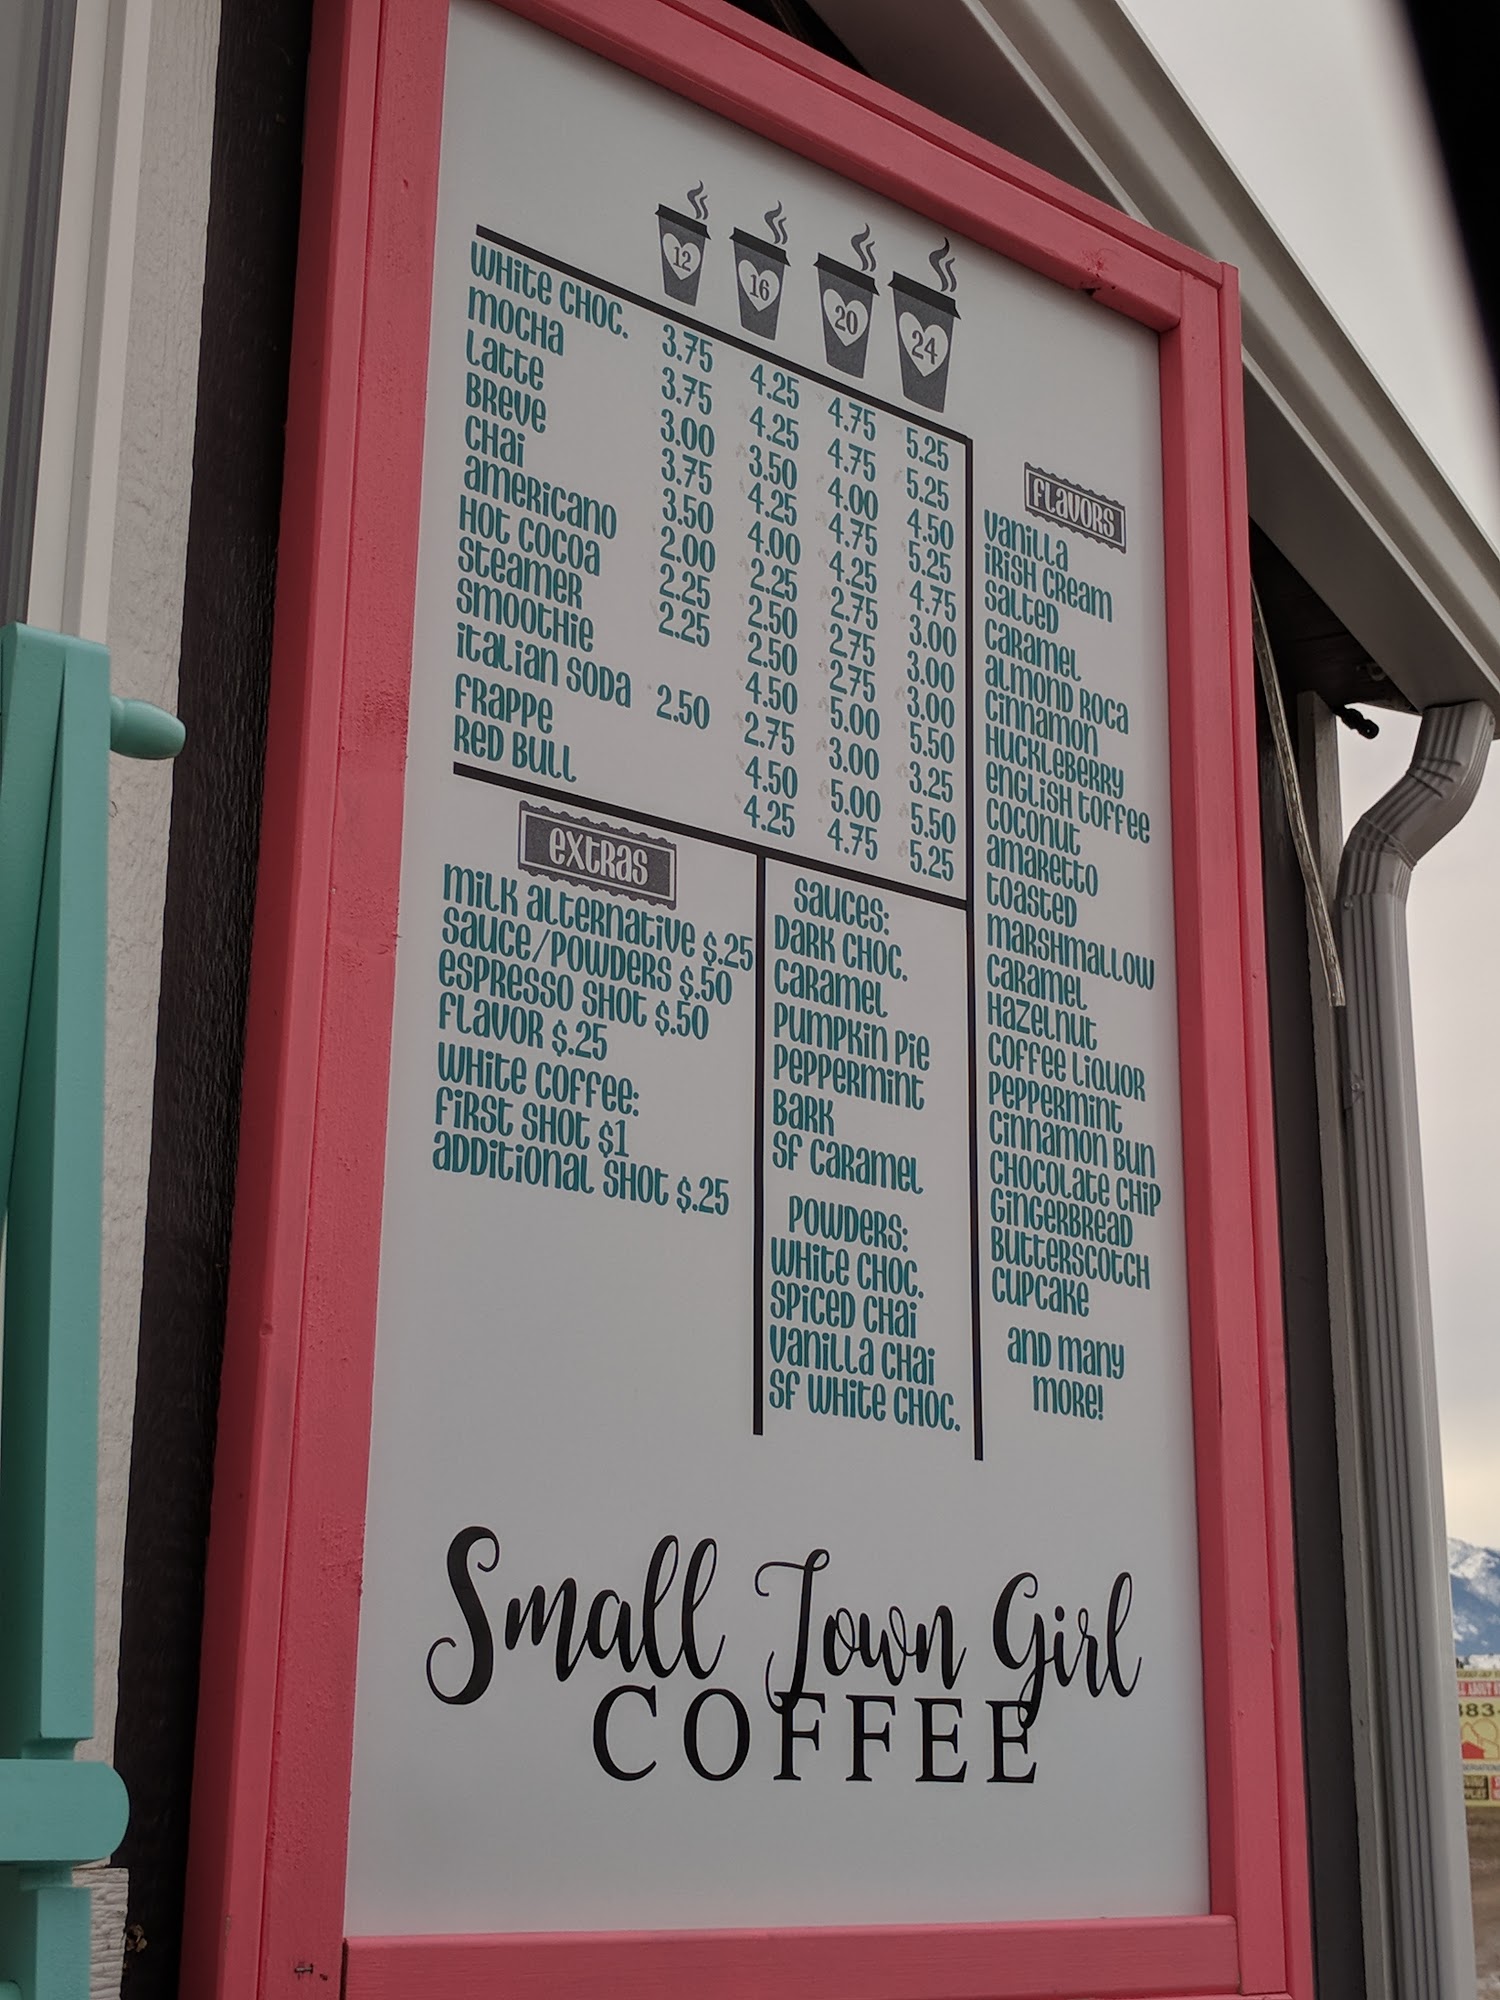 12 16 20 24
WHITE CHOC. 3.75 4.25 4.75 5.25
MOCHA 3.75 4.25 4.75 5.25
LATTE 3.00 3.50 4.00 4.50
BREVE 3.75 4.25 4.75 5.25
CHAI 3.50 4.00 4.25 4.75
AMERICANO 2.00 2.25 2.75 3.00
HOT COCOA 2.25 2.50 2.75 3.00
STEAMER 2.25 2.50 2.75 3.00
SMOOTHIE 4.50 5.00 5.50
ITALIAN SODA 2.50 2.75 3.00 3.25
FRAPPE 4.50 5.00 5.50
RED BULL 4.25 4.75 5.25
EXTRAS
MILK ALTERNATIVE $.25
SAUCE/POWDERS $.50
ESPRESSO SHOT $.50
FLAVOR $.25
WHITE COFFEE:
FIRST SHOT $1
ADDITIONAL SHOT $.25
SAUCES:
DARK CHOC.
CARAMEL
PUMPKIN PIE
PEPPERMINT
BARK
SF CARAMEL
POWDERS:
WHITE CHOC.
SPICED CHAI
VANILLA CHAI
SF WHITE CHOC.
FLAVORS
VANILLA
IRISH CREAM
SALTED
CARAMEL
ALMOND ROCA
CINNAMON
HUCKLEBERRY
ENGLISH TOFFEE
COCONUT
AMARETTO
TOASTED
MARSHMALLOW
CARAMEL
HAZELNUT
COFFEE LIQUOR
PEPPERMINT
CINNAMON BUN
CHOCOLATE CHIP
GINGERBREAD
BUTTERSCOTCH
CUPCAKE
AND MANY
MORE!
Small Town Girl
COFFEE